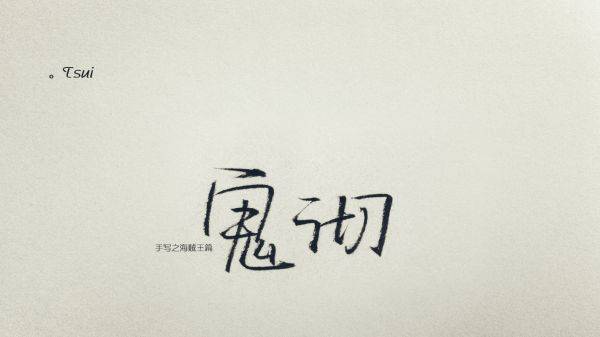 。Tsui
鬼彻
手写之海贼王篇